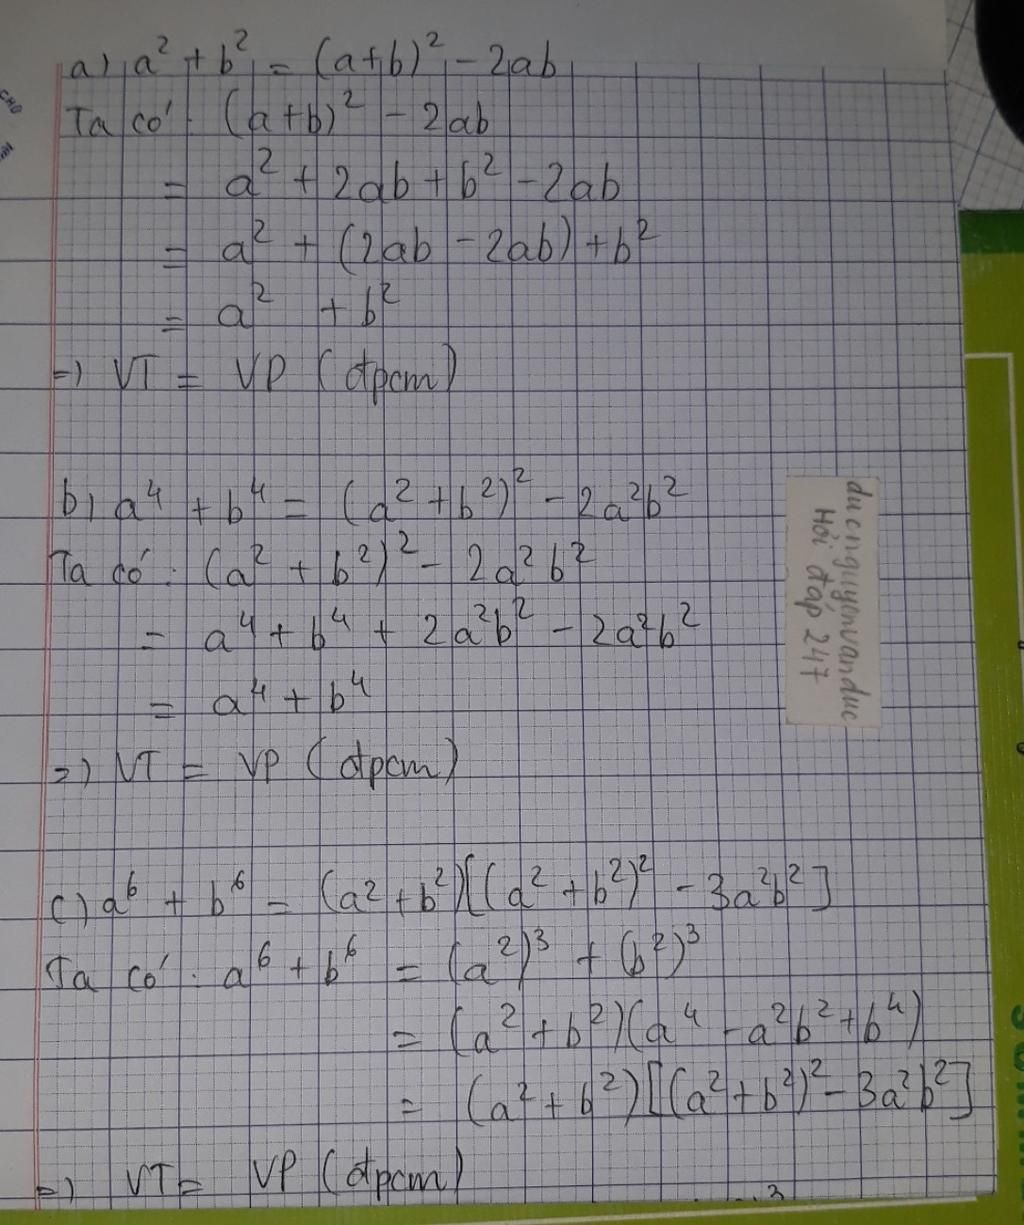 a) a² + b² = (a+b)² - 2ab
Ta có: (a+b)² - 2ab
= a² + 2ab + b² - 2ab
= a² + (2ab - 2ab) + b²
= a² + b²
=) VT = VP (đpcm)
b) a⁴ + b⁴ = (a² + b²)² - 2a²b²
Ta có: (a² + b²)² - 2a²b²
= a⁴ + b⁴ + 2a²b² - 2a²b²
= a⁴ + b⁴
=) VT = VP (đpcm)
ducnguyenvanduc
Hỏi đáp 247
c) a⁶ + b⁶ = (a² + b²)[(a² + b²)² - 3a²b²]
Ta có: a⁶ + b⁶ = (a²)³ + (b²)³
= (a² + b²)(a⁴ - a²b² + b⁴)
= (a² + b²)[(a² + b²)² - 3a²b²]
=) VT = VP (đpcm)